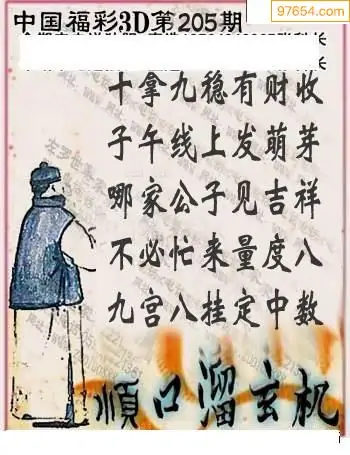 97654.com
中国福彩3D第205期
十拿九稳有财收
子午线上发萌芽
哪家公子见吉祥
不必忙来量度八
九宫八挂定中数
順口溜玄机